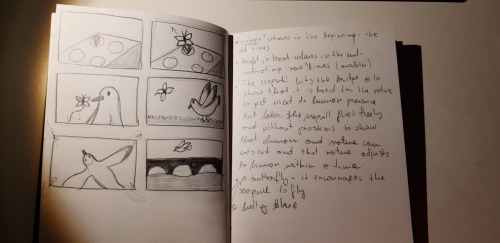 "vintage" colours in the beginning - the
old times
- bright, vibrant colours in the end -
new times (modern)
- The seagull hits the bridge to
show that it is hard for the nature
to get used to human presence
but later, the seagull flies freely
and without problems to show
that human and nature can
and that nature adjusts
to human within a time
- a butterfly - it encourages the
seagull to fly
holly Blue